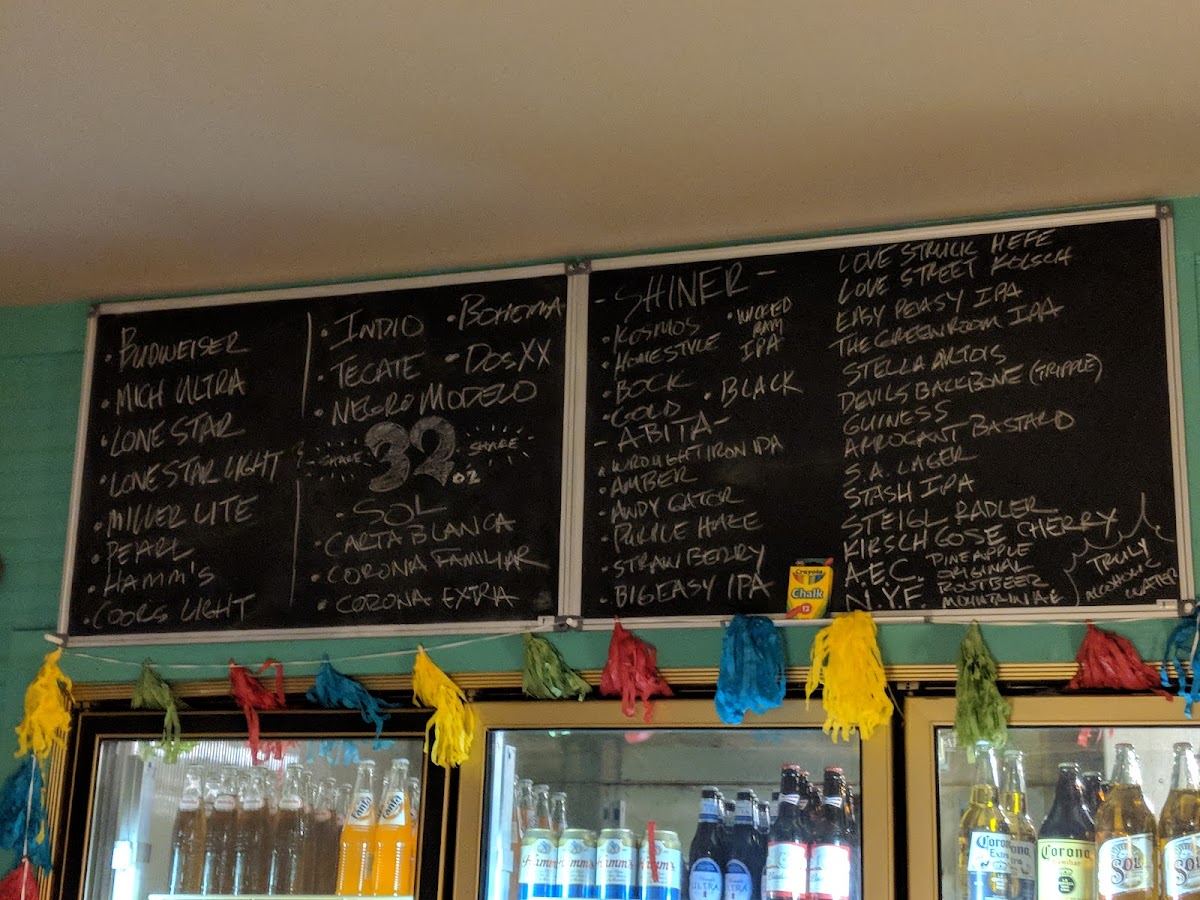 · BUDWEISER
· MICH ULTRA
· LONE STAR
· LONE STAR LIGHT
· MILLER LITE
· PEARL
· HAMM'S
· COORS LIGHT
· INDIO
· BOHEMIA
· TECATE
· DOS XX
· NEGRO MODELO
SHARE 32 oz SHARE
· SOL
· CARTA BLANCA
· CORONA FAMILIAR
· CORONA EXTRA
- SHINER -
· KOSMOS
· HOMESTYLE
· BOCK
· GOLD
· WICKED
RAM
IPA
· BLACK
- ABITA -
· WROUGHT IRON IPA
· AMBER
· ANDY GATOR
· PURPLE HAZE
· STRAWBERRY
· BIG EASY IPA
LOVE STRUCK HEFE
LOVE STREET KOLSCH
EASY PEASY IPA
THE GREENROOM IPA
STELLA ARTOIS
DEVILS BACKBONE (TRIPPLE)
GUINESS
ARROGANT BASTARD
S.A. LAGER
STASH IPA
STEIGL RADLER
KIRSCH GOSE CHERRY
A.E.C. PINEAPPLE
ORIGINAL
N.Y.F. ROOTBEER
MOUNTAIN ALE
TRULY
ALCOHOLIC
WATER
Crayola
Chalk
12
Fanta
Fanta
Hamm's
Hamm's
Hamm's
ULTRA
ULTRA
Corona
Extra
Corona
Familiar
SOL
SOL